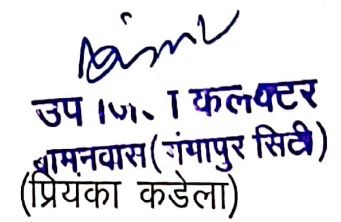 उप कलक्टर
बामनवास(गंगापुर सिटी)
(प्रियका कडेला)